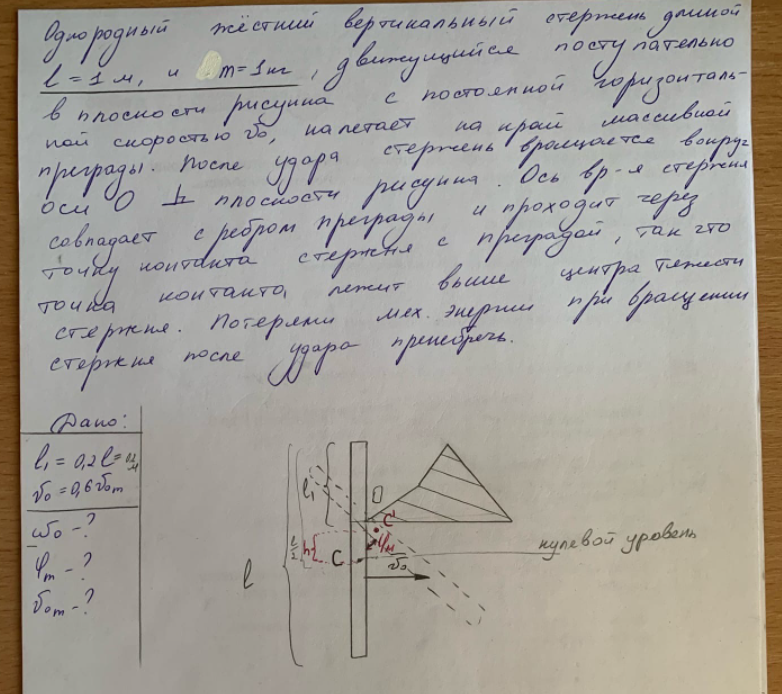 Однородный жёсткий вертикальный стержень длиной
l = 1 м, и m = 1 кг, движущийся поступательно
в плоскости рисунка с постоянной горизонталь-
ной скоростью v₀, налетает на край массивной
преграды. После удара стержень вращается вокруг
оси О ⊥ плоскости рисунка. Ось вр-я стержня
совпадает с ребром преграды и проходит через
точку контакта стержня с преградой, так что
точка контакта лежит выше центра тяжести
стержня. Потерями мех. энергии при вращении
стержня после удара пренебречь.
Дано:
l₁ = 0,2 l = 0,2 м
v₀ = 0,6 v₀m
ω₀ - ?
φm - ?
v₀m - ?
l
l/2
l₁
h
O
C'
φм
C
v₀
нулевой уровень